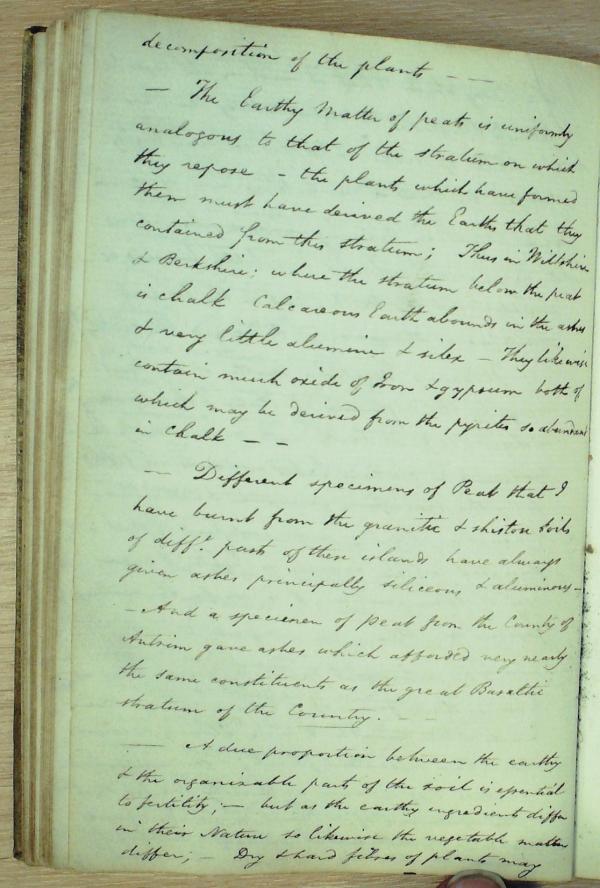 decomposition of the plants — —
— The Earthy Matter of peats is uniformly
analogous to that of the stratum on which
they repose – the plants which have formed
them must have derived the Earths that they
contained from this stratum; Thus in Wiltshire
& Berkshire: where the stratum below the peat
is chalk Calcareous Earth abounds in the ashes
& very little alumine & silex – They likewise
contain much oxide of Iron & gypsum both of
which may be derived from the pyrites so abundant
in Chalk — —
— Different specimens of Peat that I
have burnt from the granitic & shistose soils
of difft. parts of these islands have always
given ashes principally siliceous & aluminous –
– And a specimen of Peat from the County of
Antrim gave ashes which afforded very nearly
the same constituents as the great Basaltic
stratum of the Country. —
— A due proportion between the earthy
& the organizable parts of the soil is essential
to fertility; – but as the earthy ingredients differ
in their Nature so likewise the vegetable matter
differ; – Dry & hard fibres of plants may